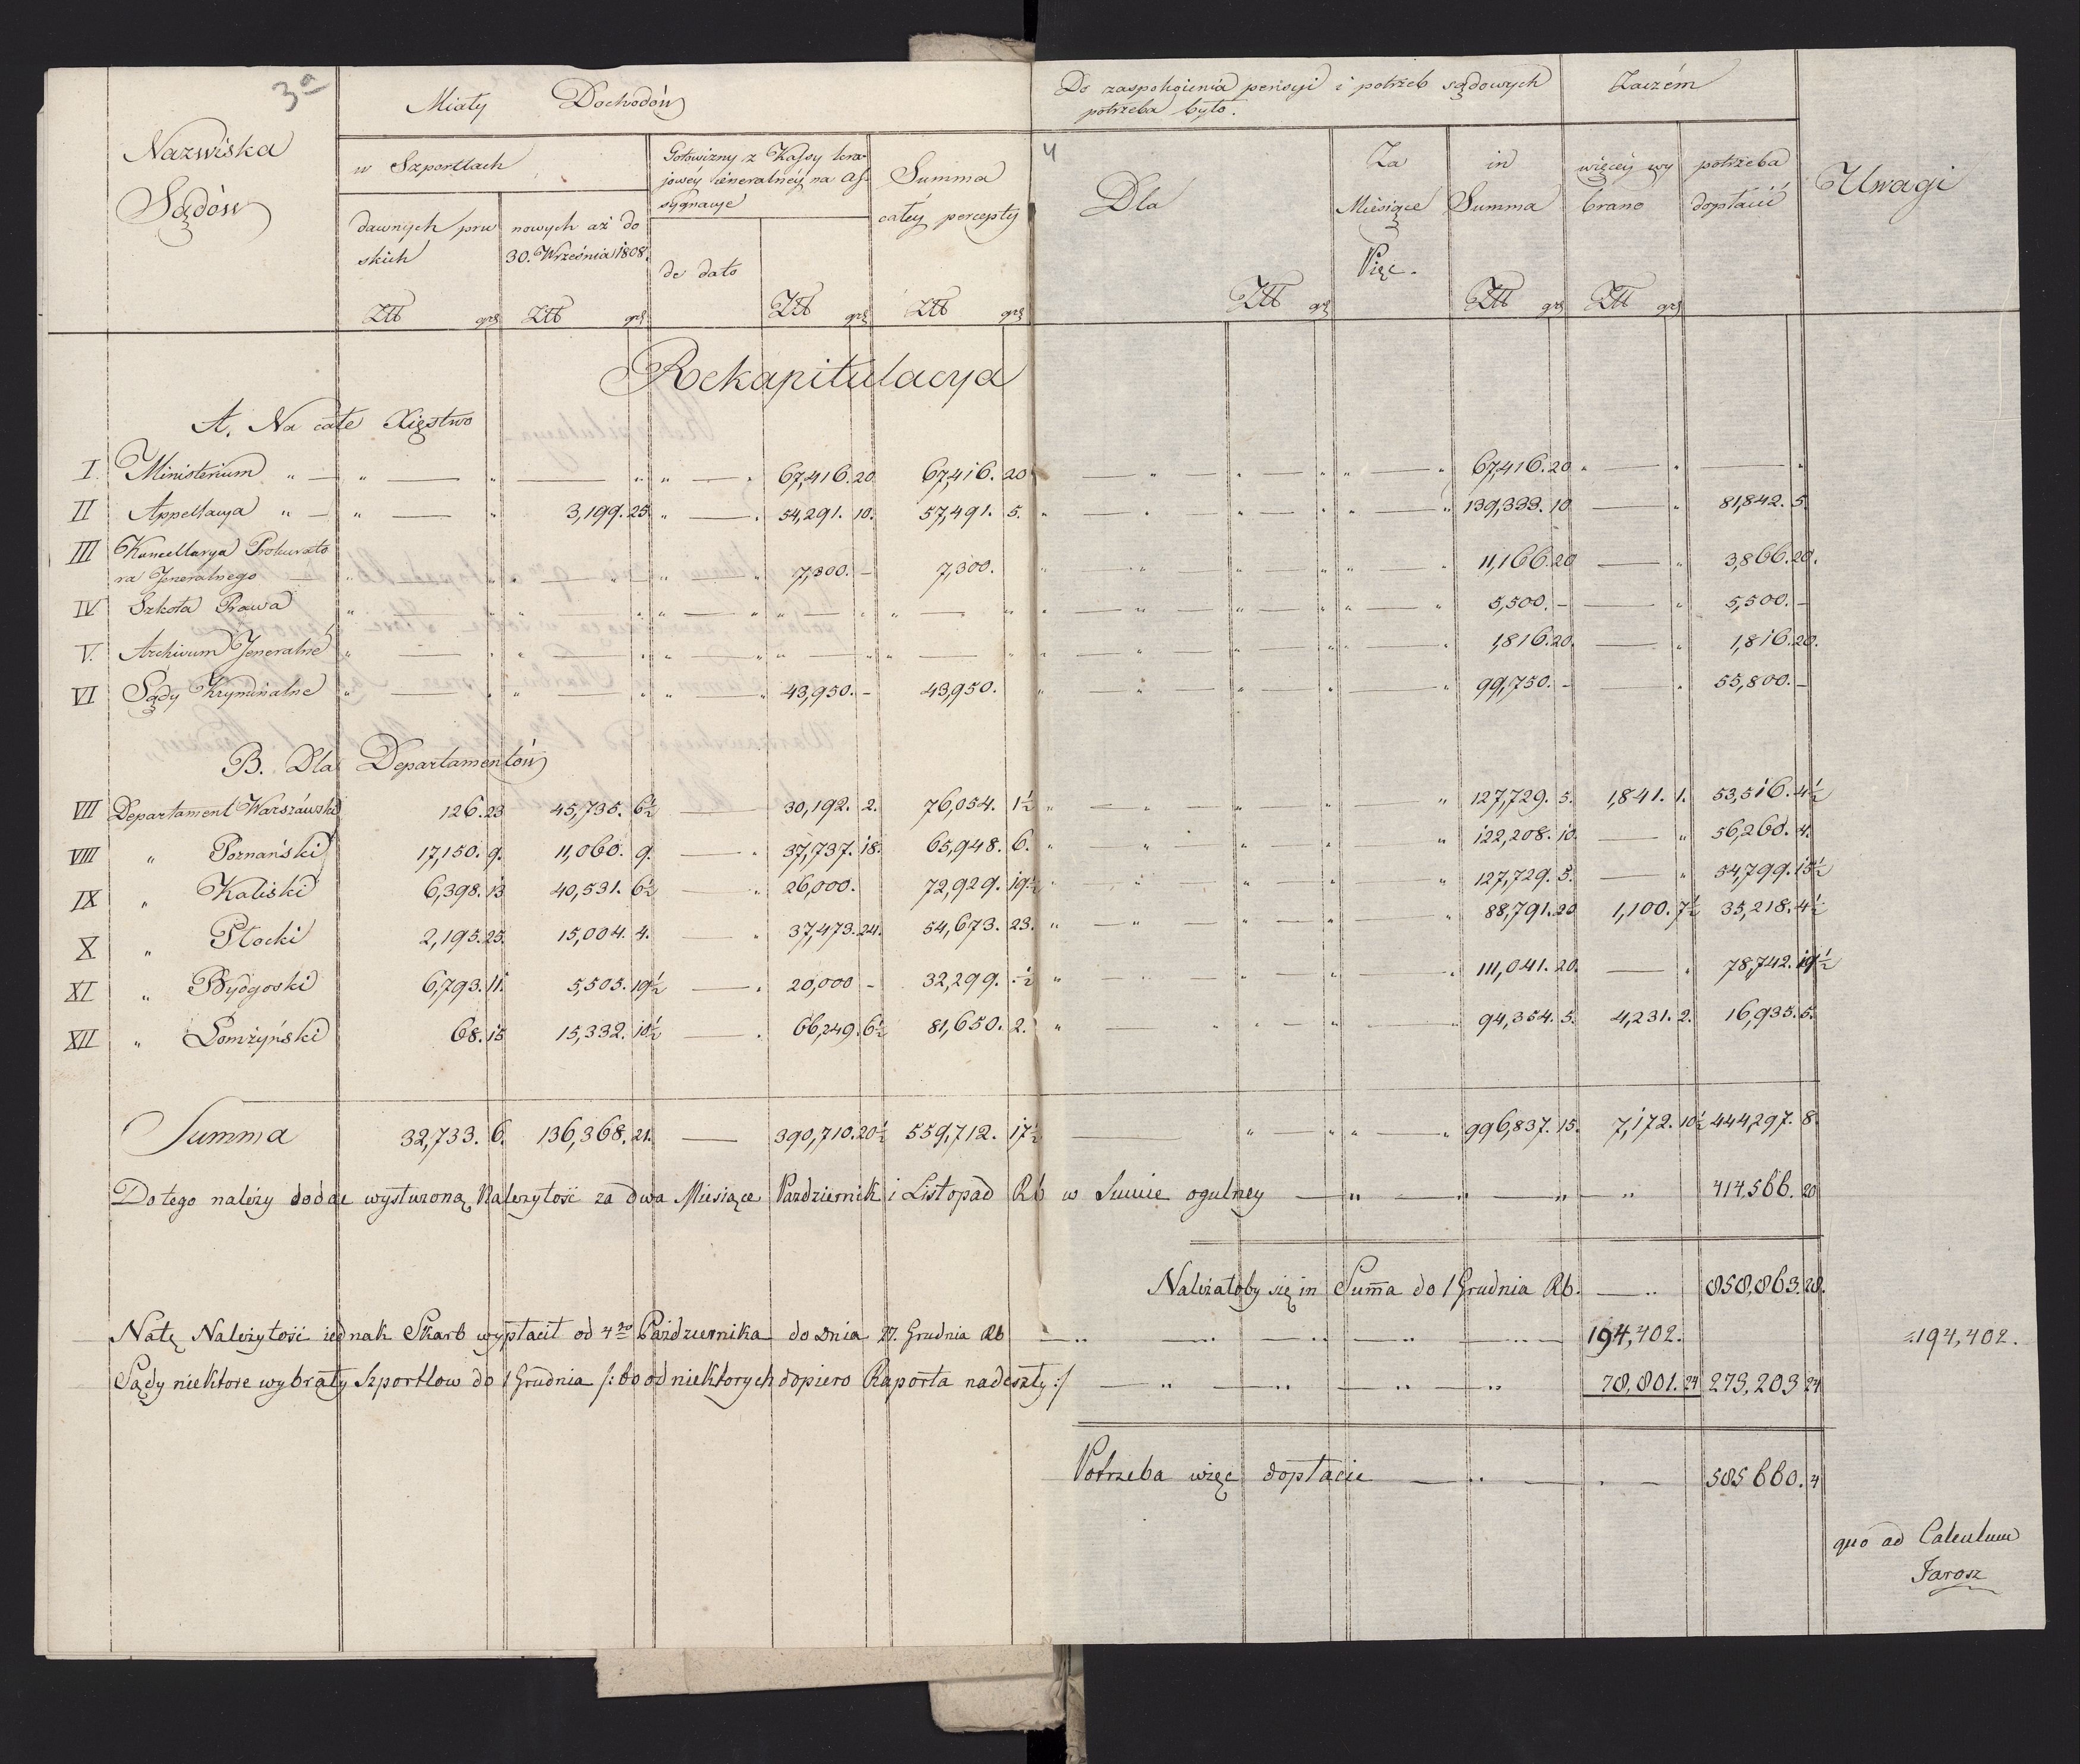 3a
Nazwiska
Sądów
Miały Dochodów
w Szportlach
dawnych pru
skich
nowych aż do
30. Września 1808.
Gotowizny z Kassy kra-
jowéy Generalnéy na As-
sygnacye
de dato
Summa
całéy percepty
Złł grz Złł grz Złł grz Złł grz
4
Do zaspokoienia pensyi i potrzeb sądowych
potrzeba było.
Dla
Za
Miesięce
Pięc.
in
Summa
Zaczém
więcéy wy
brano
potrzeba
dopłacić
Uwagi
Złł grz Złł grz Złł grz
Rekapitulacya
A. Na całe Xięstwo
I. Ministerium " — " — " — " " — " 67,416. 20 67,416. 20 — " — " " " — " 67,416. 20 " — " — "
II Appellacya " — " — " 3,199. 25. " — " 54,291. 10. 57,491. 5. " — " — " " " — " 139,333. 10 — " 81,842. 5.
III Kancellarya Prokurato
ra Jeneralnego — " — " — " " — " 7,300. — 7,300. " — " — " " " — " 11,166. 20 — " 3,866. 20.
IV. Szkoła Prawa " — " — " " — " " — " " — " " — " — " " " — " 5,500. — — " 5,500. —
V. Archivum Jeneralné " — " " — " " — " " — " " — " " — " — " " " — " 1,816. 20. — " 1,816. 20.
VI Sądy Kryminalne " — " " — " " — " 43,950. — 43,950. " — " — " " — " 99,750. — — " 55,800. —
B. Dla Departamentów
VII Departament Warszáwski 126. 23 45,735. 6½ — 30,192. 2. 76,054. 1½ " — " — " " " 127,729. 5. 1,841. 1. 53,516. 4½
VIII " Poznański 17,150. 9. 11,060. 9. — " 37,737. 18. 65,948. 6. " — " — " " " 122,208. 10. — " 56,260. 4.
IX " Kaliski 6,398. 13 40,531. 6½ — " 26,000. 72,929. 19½ " — " — " " — " 127,729. 5. — " 54,799. 15½
X " Płocki 2,195. 25. 15,004. 4. — " 37,473. 24. 54,673. 23. " — " — " " — " 88,791. 20 1,100. 7½ 35,218. 4½
XI " Bydgoski 6,793. 11. 5,505. 19½ — " 20,000 — 32,299. ·½ " — " — " " — " 111,041. 20. — " 78,742. 19½
XII " Łomżyński 68. 15 15,332. 10½ — " 66,249. 6½ 81,650. 2. " — " — " " — " 94,354. 5. 4,231. 2. 16,935. 5.
Summa 32,733. 6. 136,368. 21. — 390,710. 20½ 559,712. 17½ — " " " — " 996,837. 15. 7,172. 10½ 444,297. 8.
Do tego należy dodac wysłuzoną Nalezytość za dwa Miesiące Pazdziernik i Listopad Rb w Sumie ogulney — " — " — " — " 414,566. 20
Należałoby się in Summa do 1 Grudnia Rb. — " 858,863. 28.
Natę Należytość iednak Skarb wypłacił od 4go Pazdziernika do Dnia 27. Grudnia Rb — " — " — " — " — 194,402. 194,402.
Sądy niektore wybrały Szportlow do 1 Grudnia /: bo od niektorych dopiero Raporta nadeszły :/ — " — " — " — " 78,801. 24 273,203 24
Potrzeba więc dopłacic — " — " — 585660. 4
quo ad Calculum
Jarosz